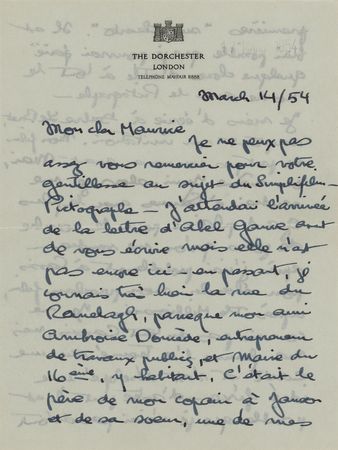 THE DORCHESTER
LONDON
TELEPHONE MAYFAIR 8888
March 14/54
Mon cher Maurice,
Je ne peux pas
assez vous remercier pour votre
gentillesse au sujet du Simplifilm-
Pictographe — J'attendai l'arrivée
de la lettre d'Abel Gance avant
de vous écrire mais elle n'est
pas encore ici — en passant, je
connais très bien la rue du
Ranelagh, parceque mon ami
Ambroise, entrepreneur
de travaux publics, et Maire du
16ème, y habitait. C'était le
père de mon copain à
et de sa soeur, une de mes